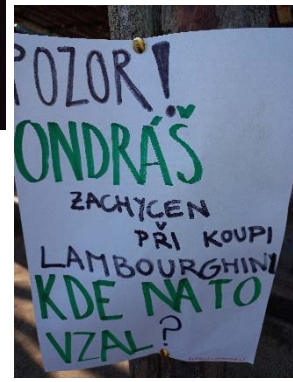 POZOR!
ONDRÁŠ
ZACHYCEN
PŘI KOUPI
LAMBOURGHINI
KDE NA TO
VZAL?